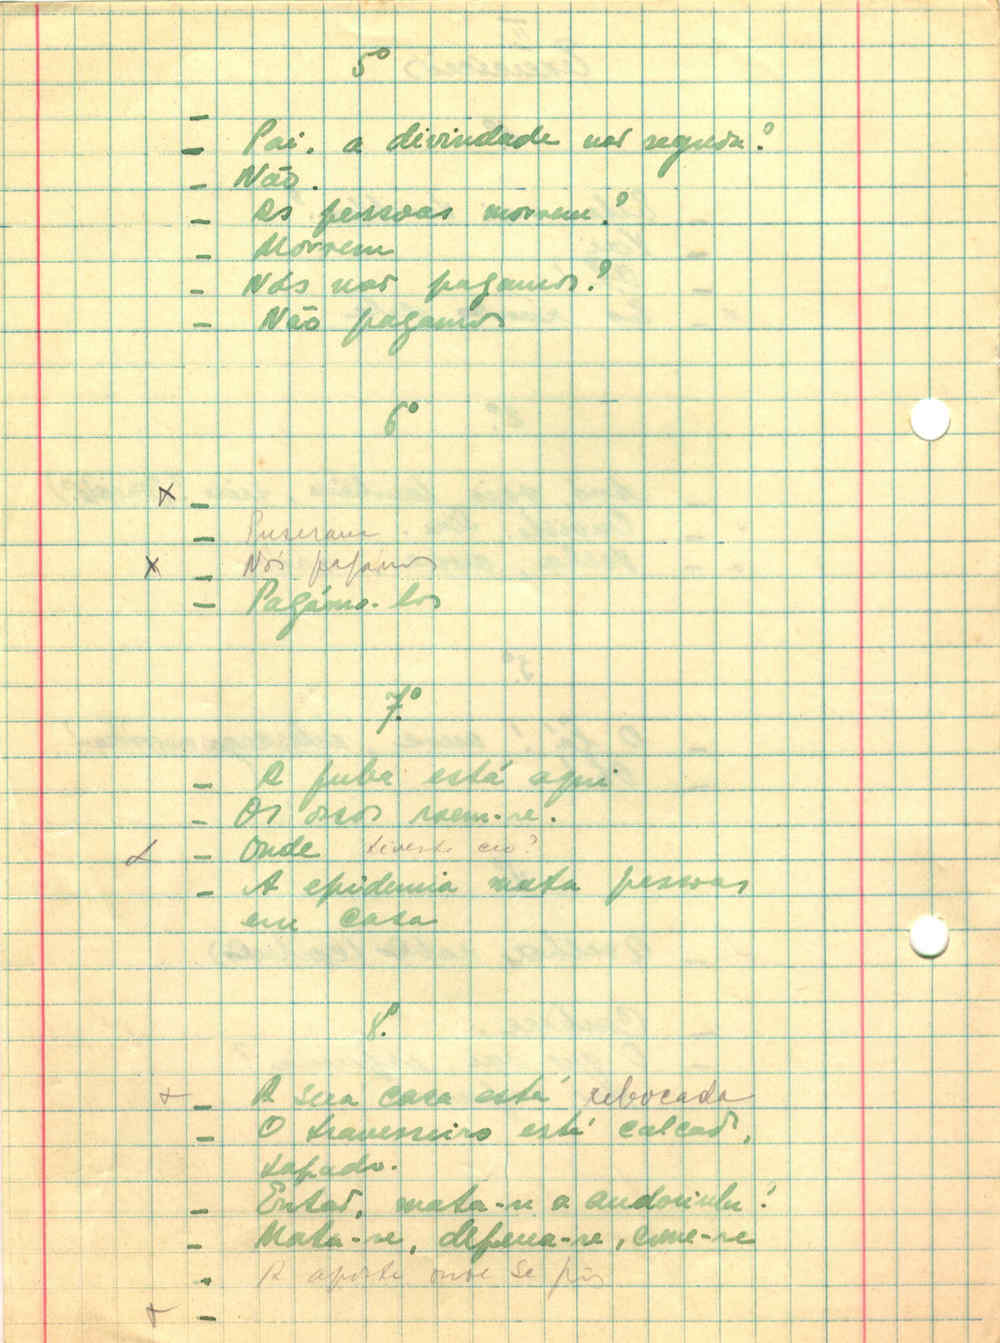 5º
-
- Pai, a divindade não segura?
- Não.
- As pessoas morrem?
- Morrem
- Nós não pagamos?
- Não pagamos
6º
x -
- Puseram
x - Nós pagámos
- Pagámo-los
7º
- A fuba está aqui
- Os ossos roem-se.
- Onde tiveste cio?
- A epidemia mata pessoas
em casa
8º
+ - A sua casa está rebocada
- O travesseiro está calcado,
tapado.
- Então, mata-se a andorinha?
- Mata-se, depena-se, come-se
- A onde se pôs
+ -